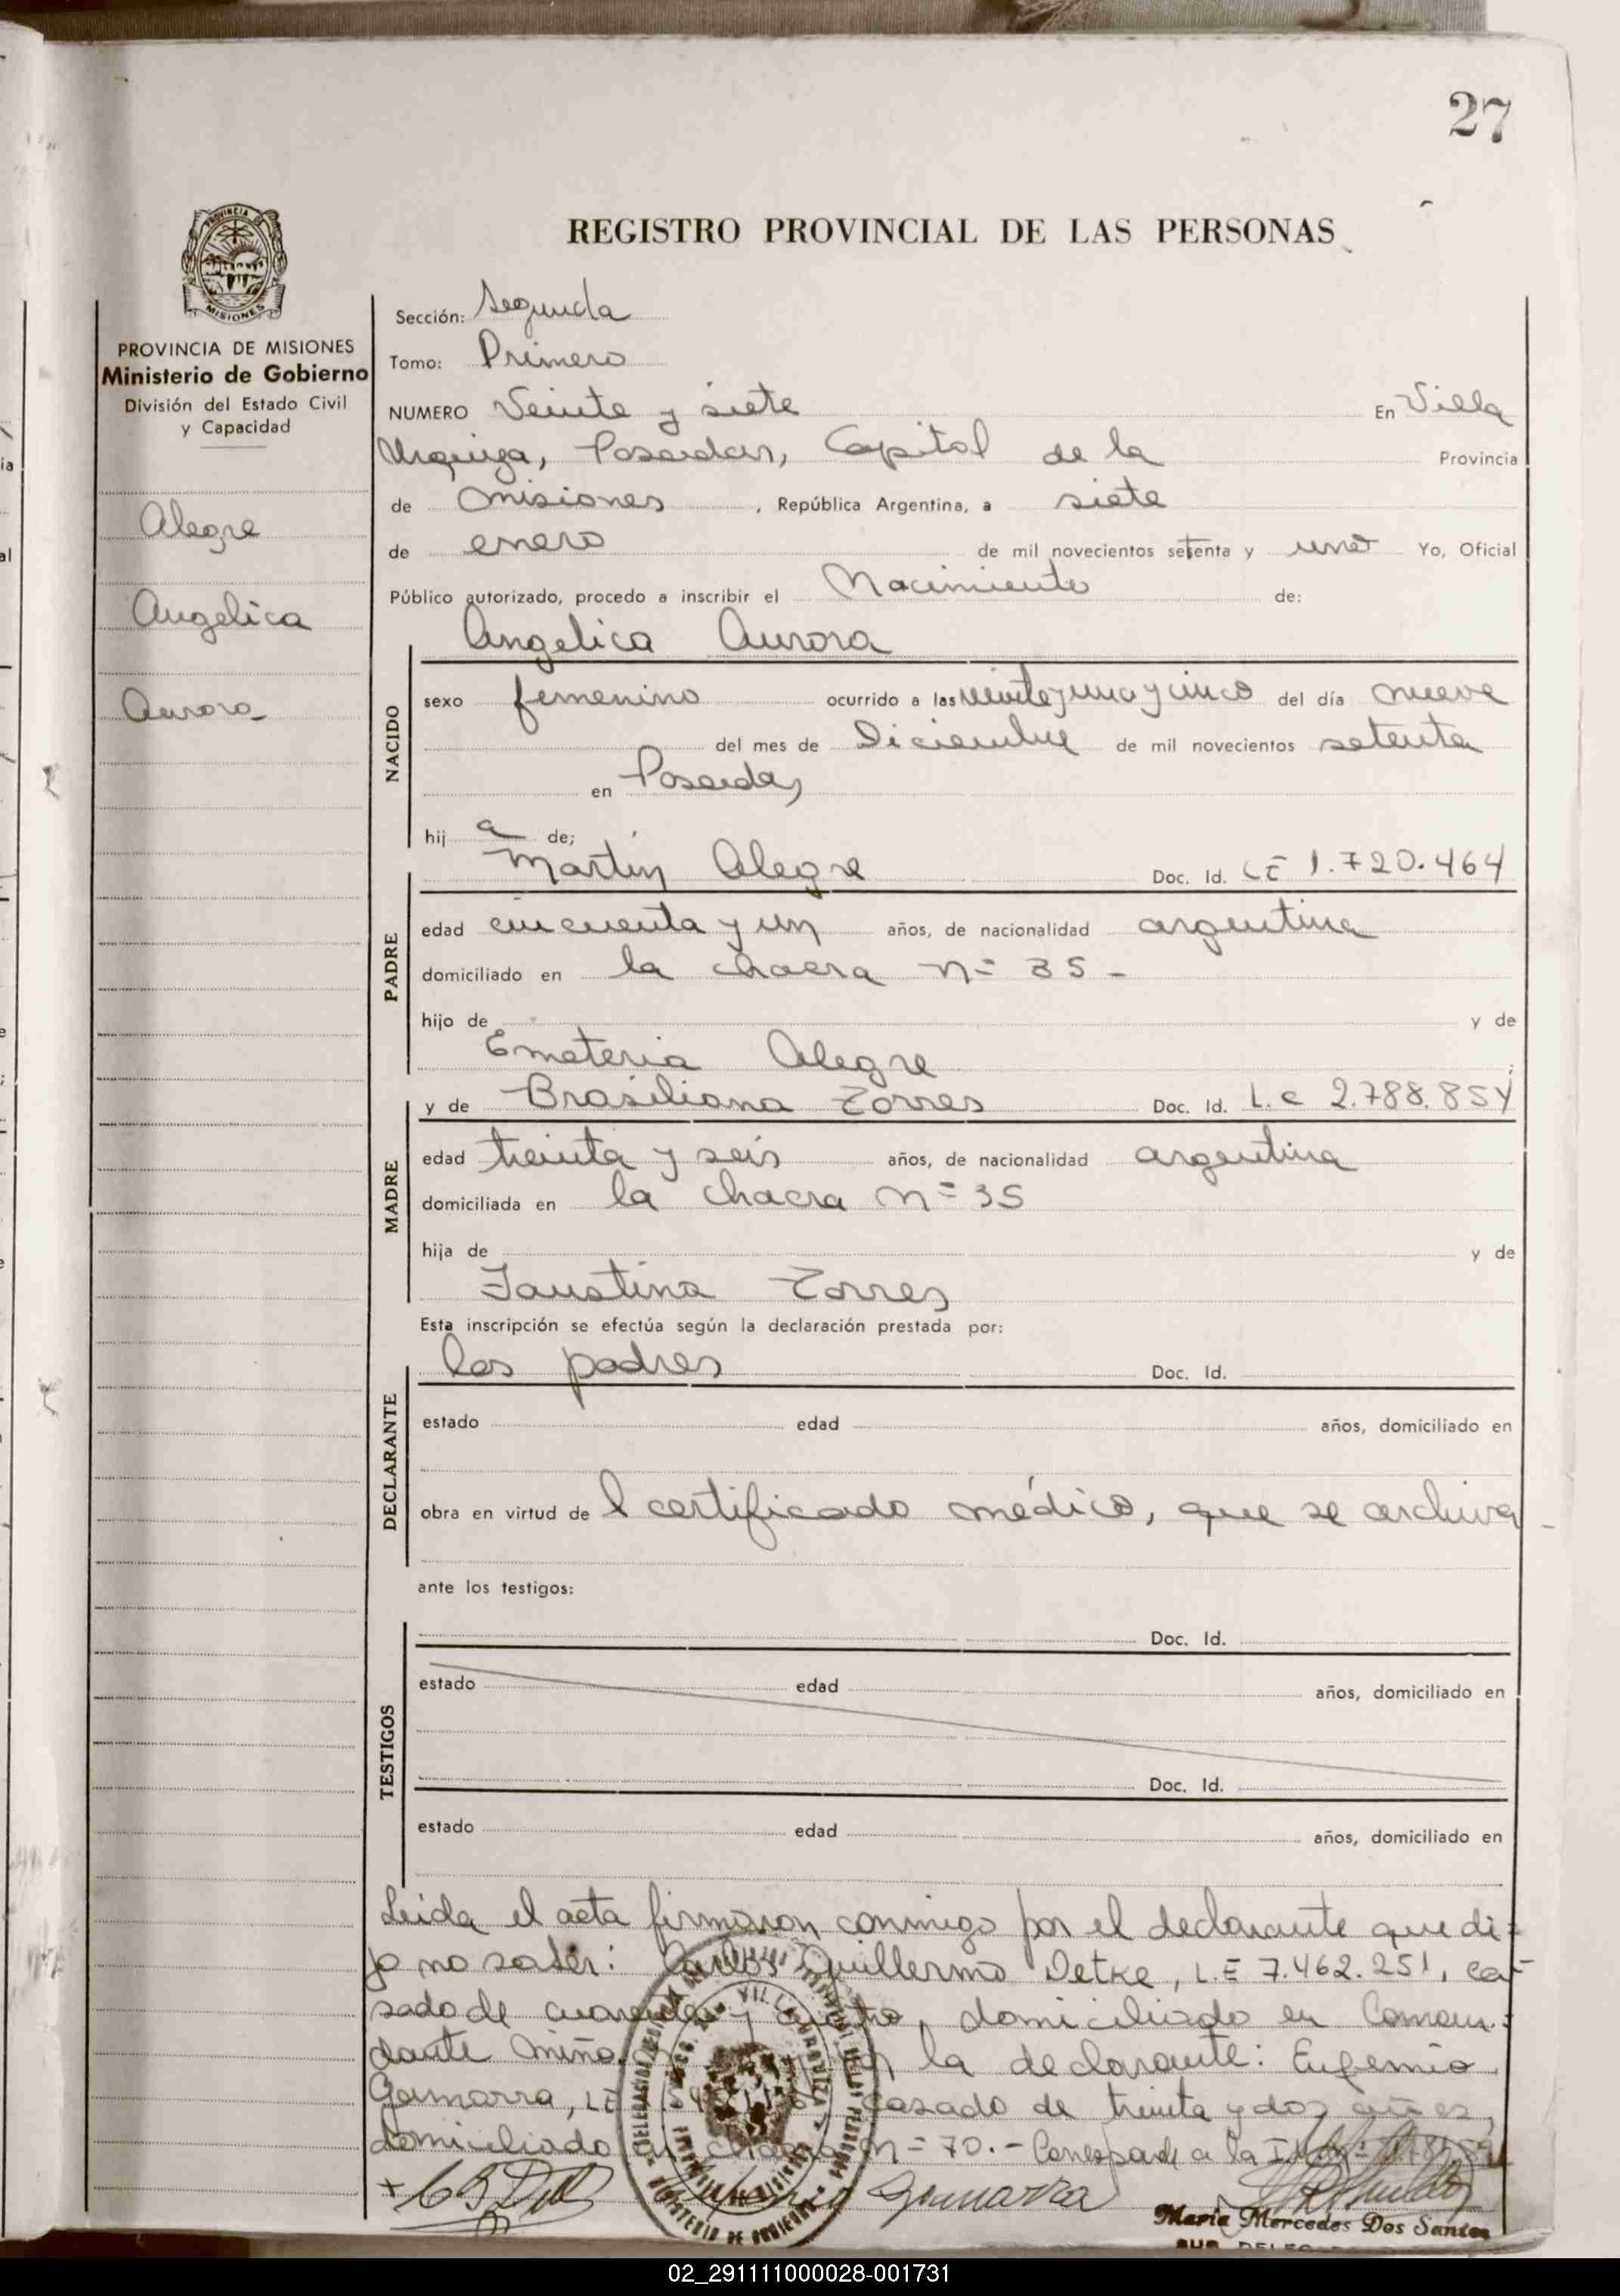 27
REGISTRO PROVINCIAL DE LAS PERSONAS
PROVINCIA DE MISIONES
Ministerio de Gobierno
División del Estado Civil
y Capacidad
Alegre
Angelica
Aurora
Sección: Segunda
Tomo: Primero
NUMERO Veinte y siete En Villa
Urquiza, Posadas, Capital de la Provincia
de Misiones, República Argentina, a siete
de enero de mil novecientos setenta y uno Yo, Oficial
Público autorizado, procedo a inscribir el Nacimiento de:
Angelica Aurora
NACIDO
sexo femenino ocurrido a las veinte y una y cinco del día nueve
del mes de Diciembre de mil novecientos setenta
en Posadas
hij a de;
Martin Alegre Doc. Id. LE 1.720.464
PADRE
edad cincuenta y un años, de nacionalidad argentina
domiciliado en la chacra n= 35 -
hijo de y de
Emeteria Alegre
y de Brasiliana Torres Doc. Id. L.C 2.788.854
MADRE
edad treinta y seis años, de nacionalidad argentina
domiciliada en la chacra n= 35
hija de y de
Faustina Torres
Esta inscripción se efectúa según la declaración prestada por:
los padres Doc. Id.
DECLARANTE
estado edad años, domiciliado en
obra en virtud de l certificado médico, que se archiva
ante los testigos:
Doc. Id.
TESTIGOS
estado edad años, domiciliado en
Doc. Id.
estado edad años, domiciliado en
Leida el acta firmaron conmigo por el declarante que di-
jo no saber: Carlos Guillermo Detke, LE 7.462.251, ca-
sado de cuarenta y cuatro, domiciliado en Coman-
dante Miño la declarante: Eugemio
Gamarra, LE casado de treinta y dos años,
domiciliado en chacra n= 70.- Corresponde a la
Gamarra
Maria Mercedes Dos Santos
02_291111000028-001731